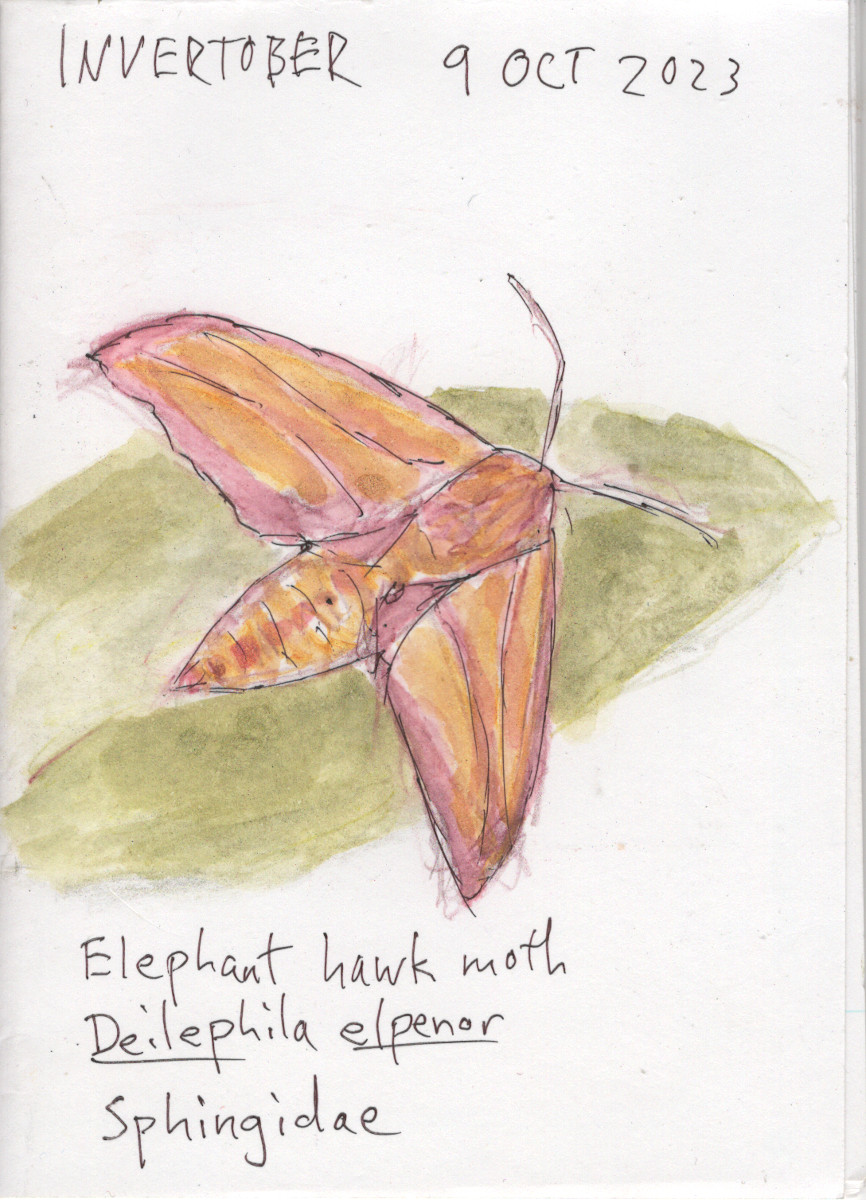 INVERTOBER 9 OCT 2023
Elephant hawk moth
Deilephila elpenor
Sphingidae